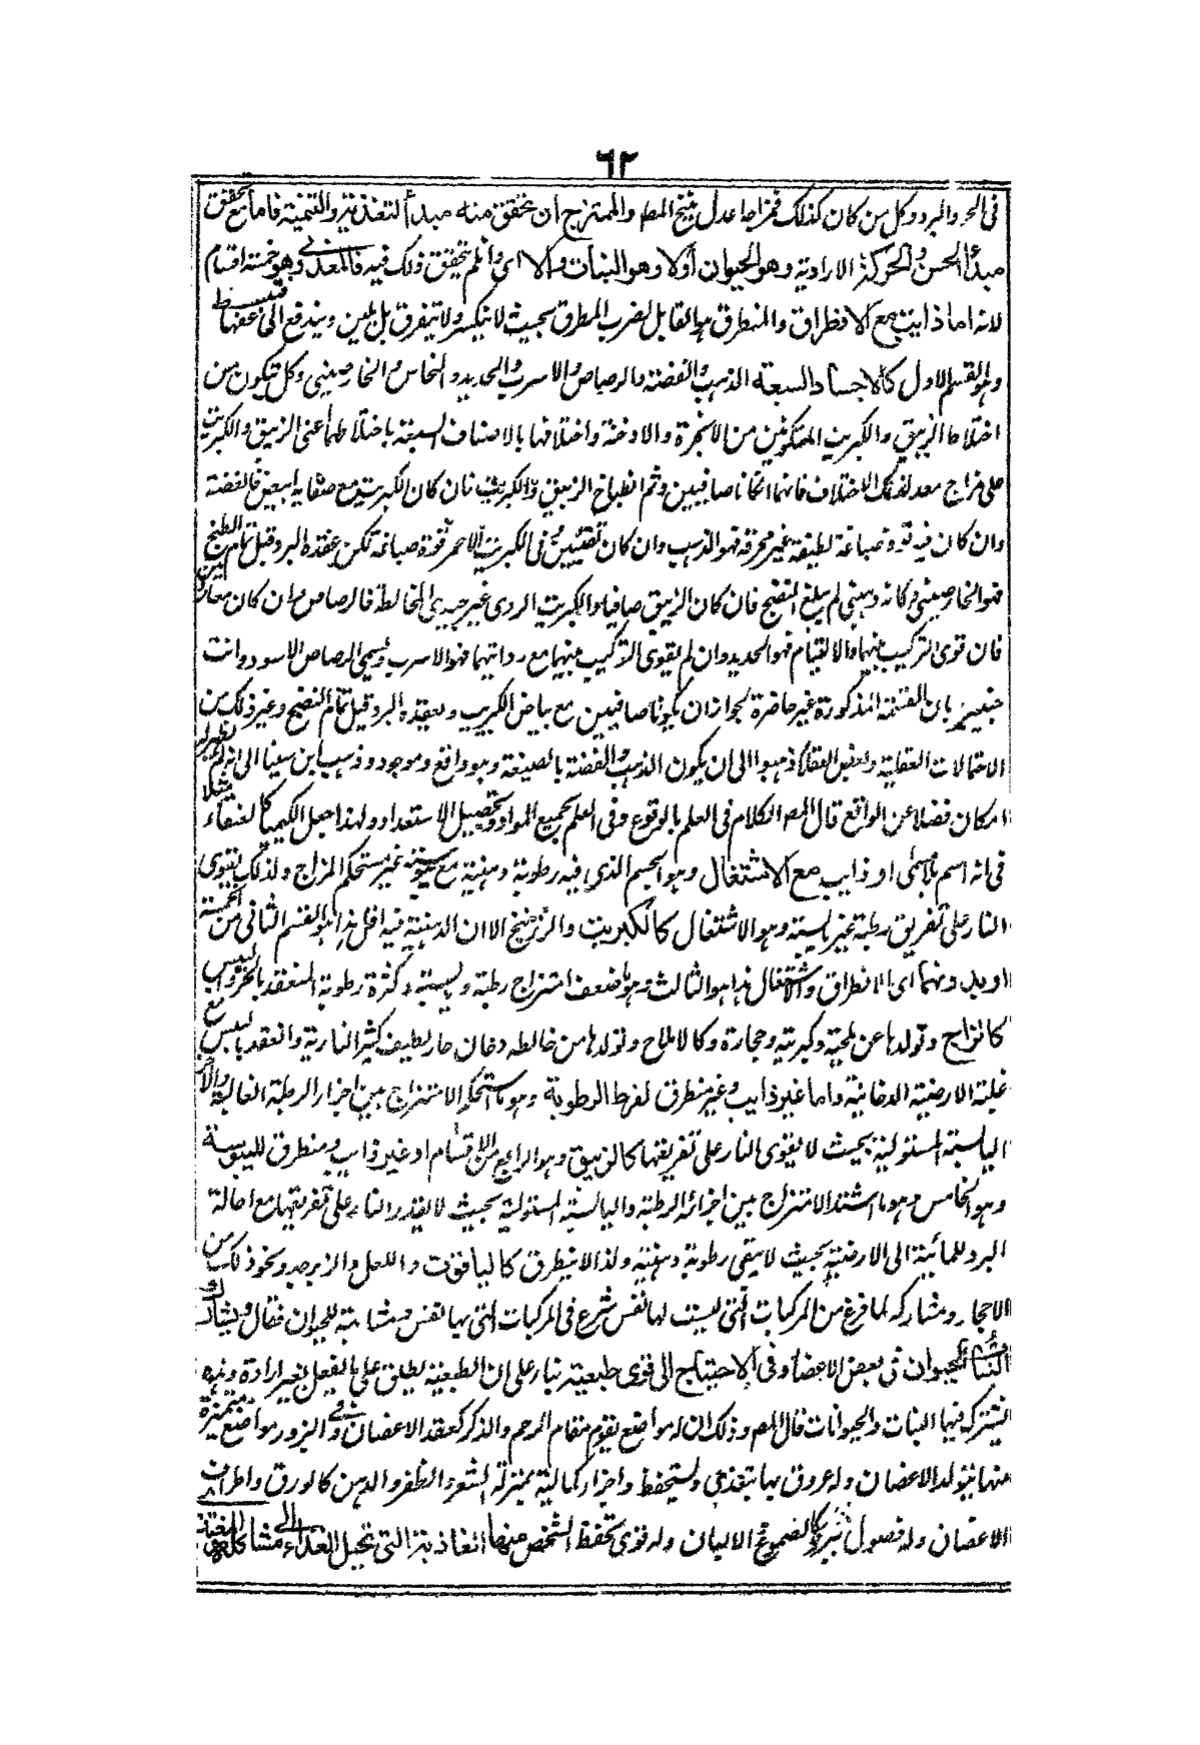 ٦٢
فى الحر والبرد وكل من كان كذلك فمزاجه اعدل ينتج المص والممتزج ان تحقق منه مبدأ التغذية والتنمية فاما مع تحقق
مبدأ الحس والحركة الارادية وهو الحيوان أولا وهو النبات والا اى وان لم يتحقق ذلك فيه فالمعدنى وهو خمسة اقسام
لانه اما ذايب مع الانطراق والمنطرق هو القابل لضرب المطرق بحيث لا ينكسر ولا يتفرق بل يلين ويندفع الى عمقها فينبسط
وهو القسم الاول كالاجساد السبعة الذهب والفضة والرصاص والاسرب والحديد والنحاس والخارصينى وكل يتكون من
اختلاط الزيبق والكبريت المتكونين من الابخرة والادخنة واختلافها بالاصناف السبعة باختلاطهما اعنى الزيبق والكبريت
على مزاج معد لذلك الاختلاف فانهما ان كانا صافيين وتم انطباخ الزيبق والكبريت فان كان الكبريت مع صفايه ابيض فالفضة
وان كان فيه قوة صباغة لطيفة غير محرقة فهو الذهب وان كان نقيين وفى الكبريت الاحمر قوة صباغة لكن عقده البرد قبل تمام الطبخ
فهو الخارصينى وكانه ذهب لم يبلغ النضج فان كان الزيبق صافيا والكبريت الردى غير جيدى المخالطة فالرصاص وان كان معا رديين
فان قوى التركيب بينهما والالتيام فهو الحديد وان لم يقوى التركيب بينهما مع رداتهما فهو الاسرب ويسمى الرصاص الاسود وانت
خبير بان القسمة المذكورة غير حاضرة لجواز ان يكونا صافيين مع بياض الكبريت ويعقده البرد قبل تمام النضج وغير ذلك من
الاحتمالات العقلية وبعض العقلا ذهبوا الى ان يكون الذهب والفضة بالصنعة وهو واقع وموجود وذهب ابن سينا الى انه لم يظهر له
امكان فضلا عن الواقع قال المص الكلام فى العلم بالوقوع وفى العلم بجميع المواد وتحصيل الاستعداد ولهذا جعل الكيميا كالعنقاء مثلا
فى انه اسم بلا مسمى او ذايب مع الاشتعال وهو الجسم الذى فيه رطوبة دهنية مع يبوسة غير مستحكم المزاج ولذلك يقوى
النار على تفريق رطبة عن يابسة وهو الاشتعال كالكبريت والزرنيخ الا ان الدهنية فيه اقل هذا هو القسم الثانى من الخمسة
او بدونهما اى الانطراق والاشتعال هذا هو الثالث وهو ما ضعف امتزاج رطبة ويابسة وكثرة رطوبة المنعقد بالحر واليبس
كالزاج وتولدها عن ملحية وكبريتية وحجارة وكالاملاح وتولدها من خالطة دخان حار لطيف كثير النارية وانعقد باليبس مع
غلبة الارضية الدخانية واما غير ذايب وغير منطرق لفرط الرطوبة وهو ما استحكم الامتزاج بين اجزاء الرطبة الغالبة والاجزاء
اليابسة المستولية بحيث لا يقوى النار على تفريقها كالزيبق وهو الرابع من الاقسام او غير ذايب ومنطرق لليبوسة
وهو الخامس وهو ما اشتد الامتزاج بين اجزائه الرطبة واليابسة المستولية بحيث لا يقدر النار على تفريقها مع احالة
البرد للمائية الى الارضية بحيث لا يبقى رطوبة دهنية ولذا لا ينطرق كالياقوت واللعل والزبرجد ونحو ذلك من
الاحجار ومشاركه لما فرغ من المركبات التى ليست لها نفس شرع فى المركبات التى بها نفس ومشابهة للحيوان فقال ويشارك
النبات للحيوان فى بعض الاعضا وفى الاحتياج الى قوى طبعية بنا على ان الطبعية يطلق على ما يفعل بغير ارادة وهذه
يشترك فيها النبات والحيوانات قال المص وذلك ان له مواضع يقوم مقام الرحم والذكر كعقد الاغصان وفى البزور مواضع متميزة
منها يتولد الاغصان وله عروق بها يتغذى ويستحفظ واجزاء كمالية بمنزلة الشعر والظفر والدهن كالورق واطراف
الاغصان وله فضول كالصموغ والالبان وله قوى تحفظ الشخص منها الغاذية التى تحيل الغذاء الى مشاكلة المغتذى